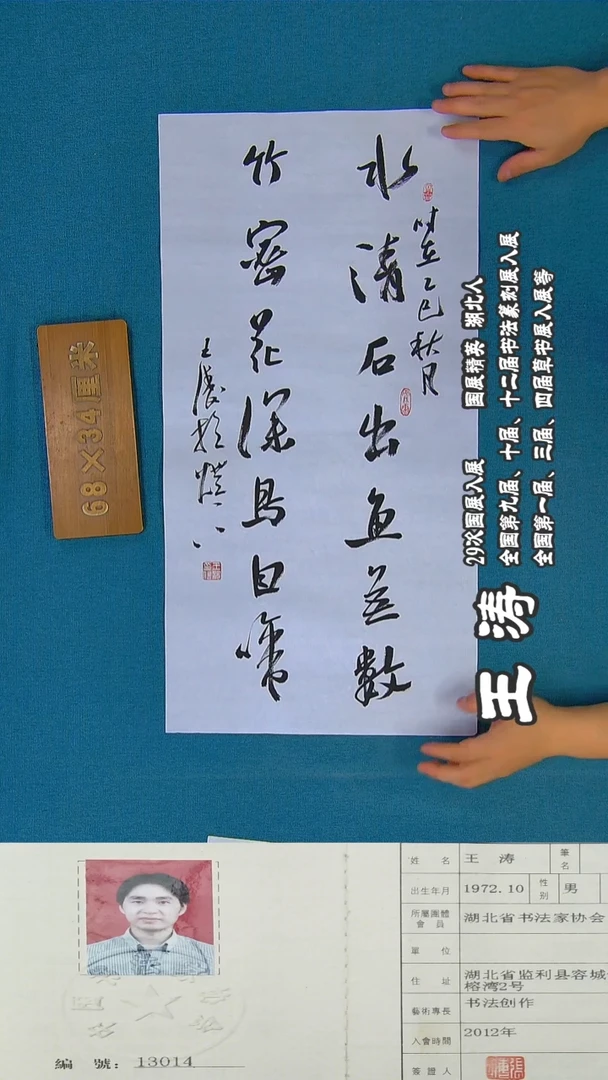 水清石出鱼无数
竹密花深鸟自啼
时在乙巳秋月
王涛
68×34厘米
王涛
29次国展入展 国展精英 湖北人
全国第九届、十届、十二届书法篆刻展入展
全国第一届、三届、四届草书展入展等
姓名 王涛 筆名
出生年月 1972.10 性别 男
所屬團體會員 湖北省书法家协会
單位
住址 湖北省监利县容城
榕湾2号
藝術專長 书法创作
入會時間 2012年
簽證人
編號：13014